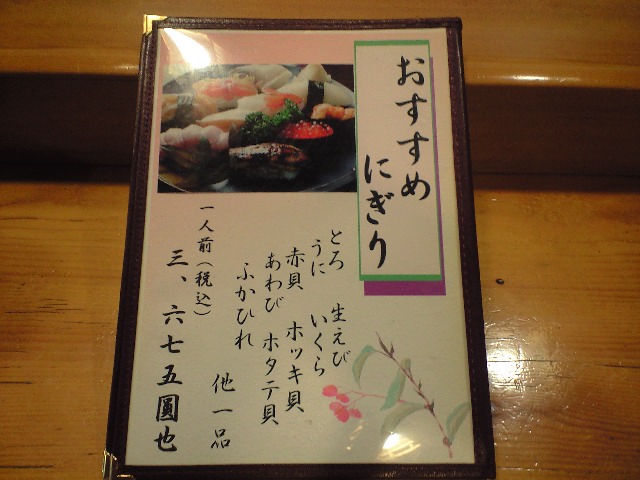 おすすめ
にぎり
とろ 生えび
うに いくら
赤貝 ホッキ貝
あわび ホタテ貝
ふかひれ
他一品
一人前(税込)
三、六七五圓也